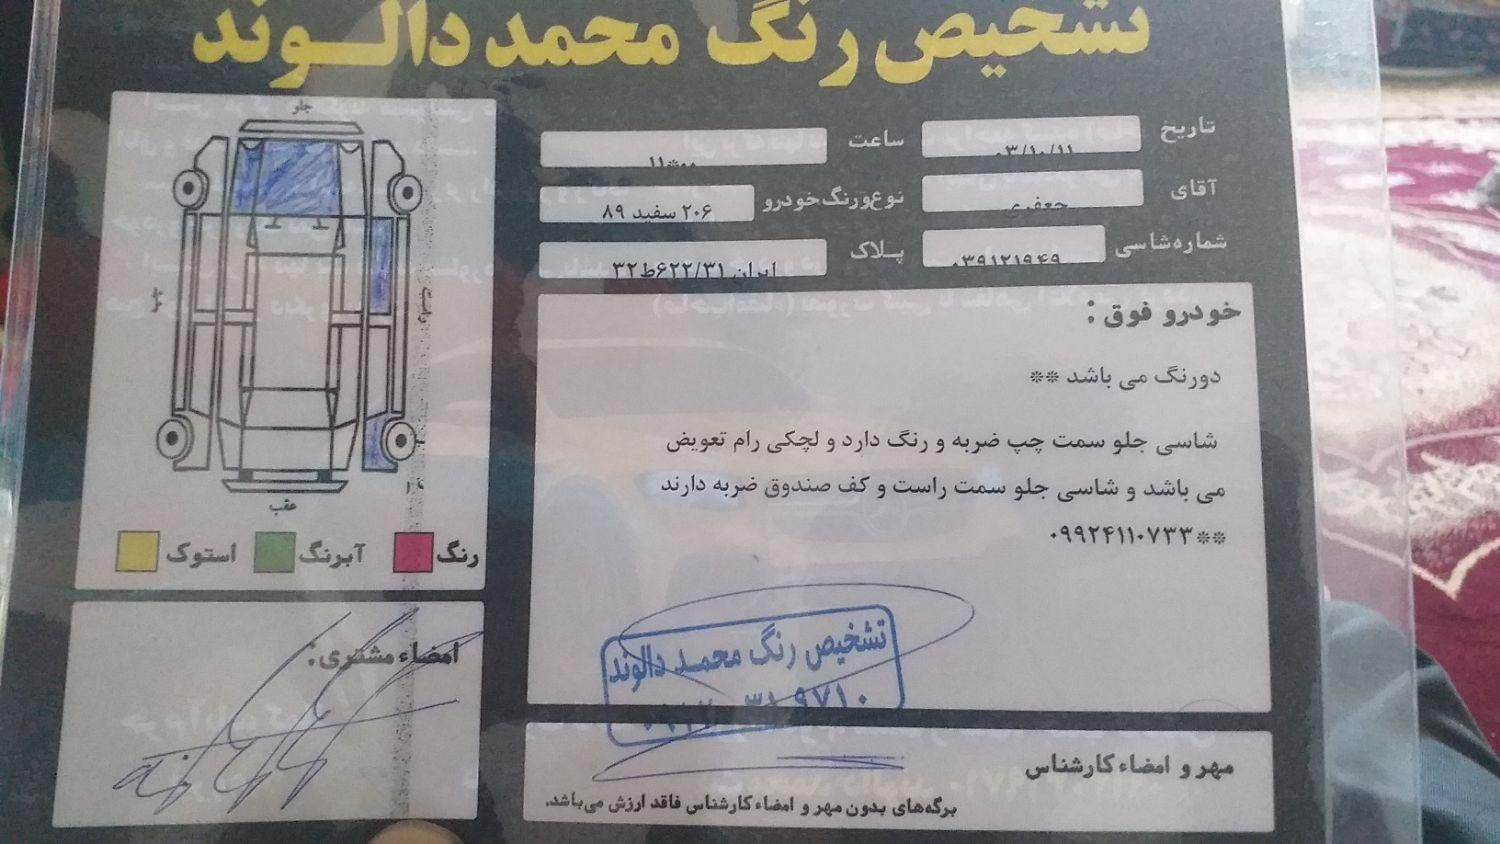 تشخیص رنگ محمد دالوند
تاریخ ۰۳/۱۰/۱۱
ساعت ۱۱*۰۰
آقای جعفری
نوع‌ورنگ‌خودرو ۲۰۶ سفید ۸۹
شماره‌شاسی ۰۳۹۱۲۱۹۴۹
پلاک ایران ۳۱/۶۲۲ط۳۲
جلو
چپ
راست
عقب
رنگ
آبرنگ
استوک
خودرو فوق :
دورنگ می باشد **
شاسی جلو سمت چپ ضربه و رنگ دارد و لچکی رام تعویض
می باشد و شاسی جلو سمت راست و کف صندوق ضربه دارند
**۰۹۹۲۴۱۱۰۷۳۳
تشخیص رنگ محمـد دالوند
امضاء مشتری:
مهر و امضاء کارشناس
برگه‌های بدون مهر و امضاء کارشناس فاقد ارزش می‌باشد.